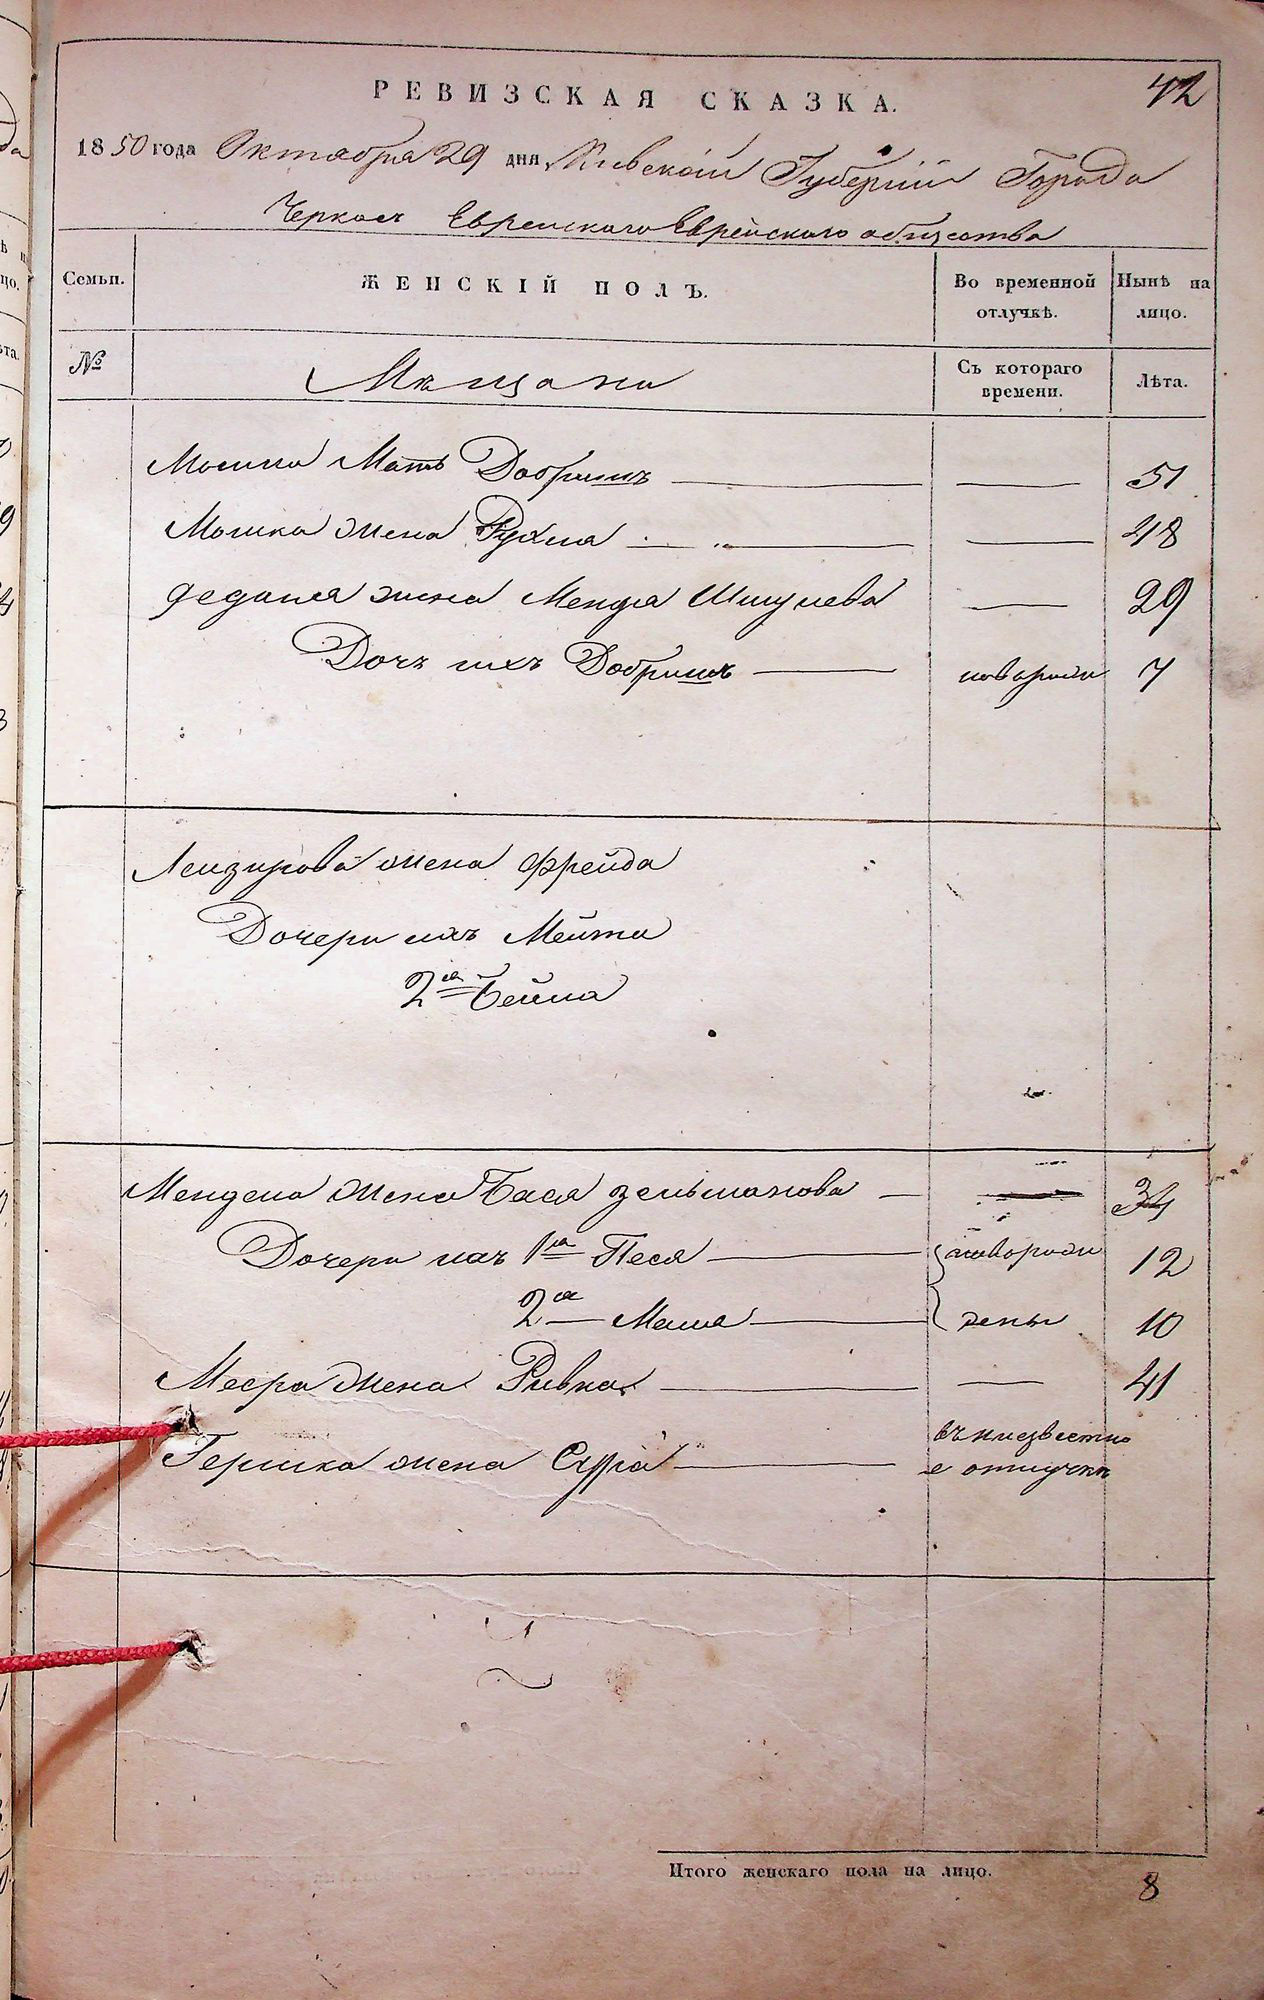 42
РЕВИЗСКАЯ СКАЗКА.
1850 года Октября 29 дня, Киевской Губернии Города
Черкас Еврейскаго Еврейскаго общества
Семьи. ЖЕНСКІЙ ПОЛЪ. Во временной отлучкѣ. Нынѣ на лицо.
№ Мещане Съ котораго времени. Лѣта.
Мать Добришъ 51
Мошка жена Рухля 48
жена Менdля 29
Дочь ихъ Добришъ новороди 7
Лейзирова жена Фрейда
Дочери ихъ Мейта
2я Бейла
Менделя жена Бася Зельманова 34
Дочери ихъ 1я Песя новорожи 12
2я Маша дены 10
Меера жена Ривка 41
Гершка жена Сура въ неизвестно
е отлучкѣ
Итого женскаго пола на лицо. 8